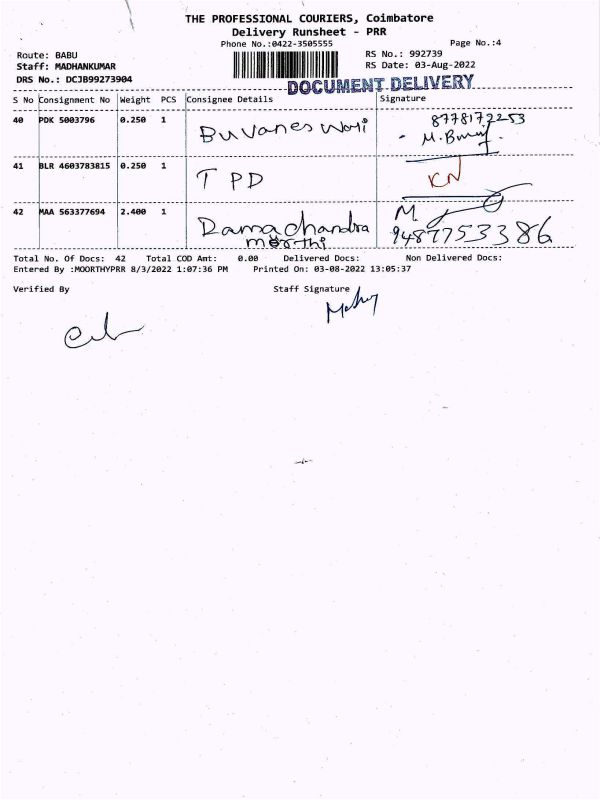 THE PROFESSIONAL COURIERS, Coimbatore
Delivery Runsheet - PRR
Phone No.:0422-3505555 Page No.:4
Route: BABU RS No.: 992739
Staff: MADHANKUMAR RS Date: 03-Aug-2022
DRS No.: DCJB99273904 DOCUMENT DELIVERY
S No Consignment No Weight PCS Consignee Details Signature
40 PDK 5003796 0.250 1 Buvaneswari 8778172253
41 BLR 4603783815 0.250 1 TPD KN
42 MAA 563377694 2.400 1 Ramachandra M.
morthi 9487753386
Total No. Of Docs: 42 Total COD Amt: 0.00 Delivered Docs: Non Delivered Docs:
Entered By :MOORTHYPRR 8/3/2022 1:07:36 PM Printed On: 03-08-2022 13:05:37
Verified By Staff Signature